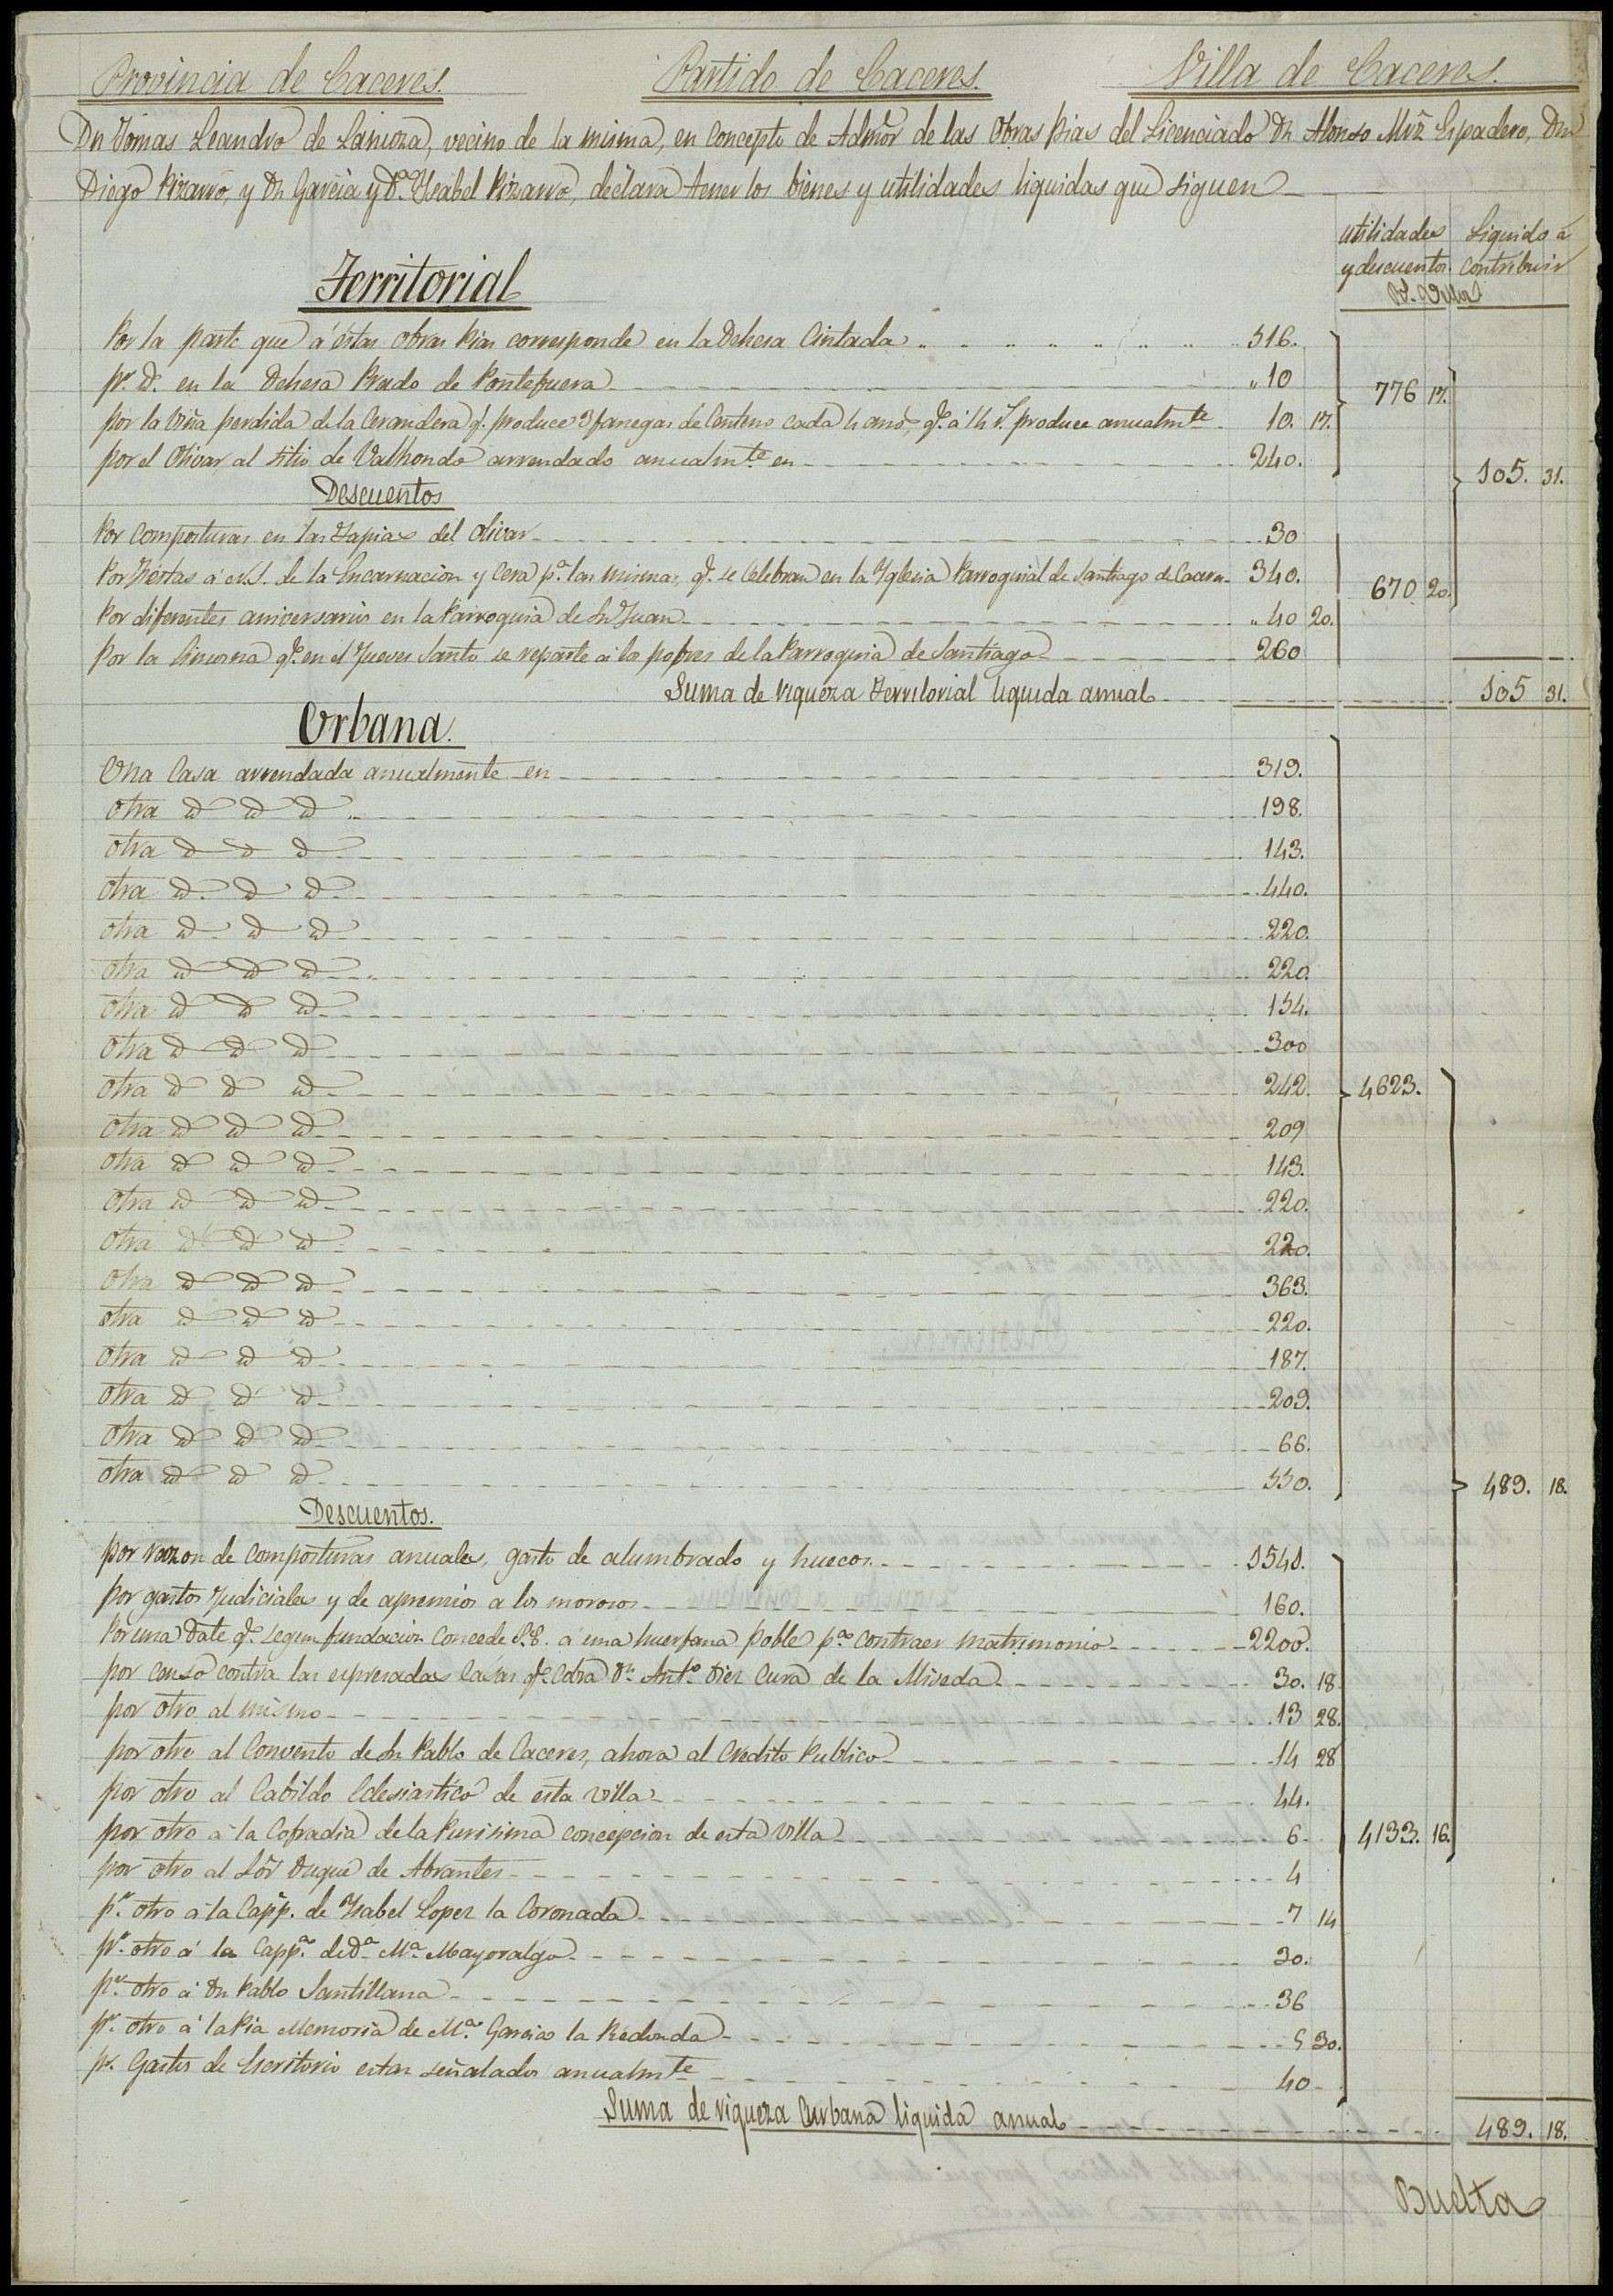 Provincia de Caceres. Partido de Caceres. Villa de Caceres.
Dn Tomas Leandro de Lanuza, vecino de la misma, en concepto de Admor de las Obras pias del Licenciado Dn Alonso Mrz Espadero, Dn
Diego Pizarro, y Dn Garcia y Dª Ysabel Pizarro, declara tener los bienes y utilidades liquidas que siguen
utilidades y descuentos Rs. Vellon
Liquido á contribuir
Territorial
Por la parte que á éstas obras Pias corresponde en la Dehesa Cintada 516.
pr. id. en la Dehesa Prado de Pontefuera 10 776 17.
por la viña perdida de la Cerandera q. produce 3 fanegas de Centeno cada 4 años, qe. á 14 r. produce anualmte 10. 17.
por el Olivar al sitio de Valhondo arrendado anualmte en 240. 105. 31.
Descuentos
Por composturas en las Tapias del olivar 30
Por Fiestas á N.S. de la Encarnacion y Cera pª. las mismas, qe. se celebran en la Yglesia Parroquial de Santiago de Caceres 340. 670 20.
Por diferentes aniversarios en la Parroquia de Sn Juan 40 20.
Por la limosna qe. en el Jueves Santo se reparte á los pobres de la Parroquia de Santiago 260
Suma de riqueza Territorial liquida anual 105 31.
Urbana.
Una Casa arrendada anualmente en 319.
otra id id id 198.
otra id id id 143.
otra id id id 440.
otra id id id 220.
otra id id id 220.
otra id id id 154.
otra id id id 300
otra id id id 242. 4623.
otra id id id 209
otra id id id 143.
otra id id id 220.
otra id id id 220.
otra id id id 363.
otra id id id 220.
otra id id id 187.
otra id id id 209.
otra id id id 66.
otra id id id 550. 489. 18.
Descuentos.
por razon de composturas anuales, gasto de alumbrado y huecos 1541.
por gastos Judiciales y de apremios a los morosos 160.
Por una Dote qe. segun fundacion concede S.E. á una huerfana poble pª contraer matrimonio 2200.
por censo contra las espresadas Casas qe. cobra Dn. Antº Diez Cura de la 30. 18
por otro al mismo 13 28.
por otro al Convento de Sn Pablo de Caceres, ahora al Credito Publico 14 28
por otro al Cabildo Eclesiastico de esta villa 44.
por otro á la Cofradia de la Purisima concepcion de esta villa 6. 4133. 16.
por otro al Sõr Duque de Abrantes 4
pr. otro á la Capp. de Ysabel Lopez la Coronada 7 14
pr. otro á la Cappª. de Dª Mª Mayoralgo 30.
pr. otro á Dn Pablo Santillana 36
pr. otro á la Pia Memoria de Mª. Garcia la Redonda 5 30.
pr. Gastos de Escritorio estan señalados anualmte 40
Suma de riqueza Urbana liquida anual 489. 18.
Buelta